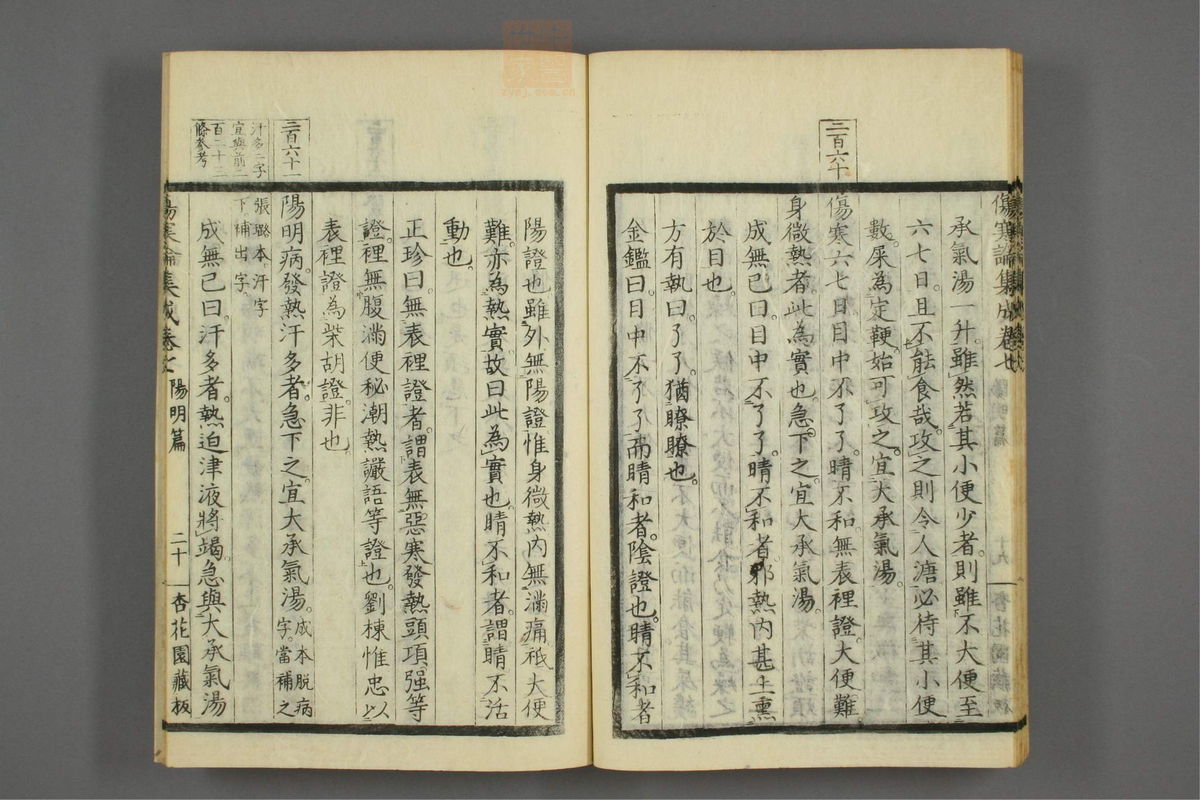 傷寒論集成卷七
承氣湯一升。雖然若其小便少者。則雖不大便至
六七日。且不能食哉。攻之則令人溏。必待其小便
數。屎為定鞕。始可攻之。宜大承氣湯。
二百六十
傷寒六七日。目中不了了。睛不和。無表裡證。大便難。
身微熱者。此為實也。急下之。宜大承氣湯。
成無已曰。目中不了了。睛不和者。邪熱內甚上熏
於目也。
方有執曰。了了。猶瞭瞭也。
金鑑曰。目中不了了而睛和者。陰證也。睛不和者
陽證也。雖外無陽證。惟身微熱。內無滿痛。祗大便
難。亦為熱實。故曰此為實也。睛不和者。謂睛不活
動也。
正珍曰。無表裡證者。謂表無惡寒發熱頭項强等
證。裡無腹滿便秘潮熱讝語等證也。劉棟惟忠以
表裡證為柴胡證非也
二百六十一
陽明病。發熱汗多者。急下之。宜大承氣湯。成本脫病字。當補之
汗多二字
宜與前二
百二十二
條參考
張璐本汗字
下補出字
成無已曰。汗多者。熱迫津液將竭。急與大承氣湯
傷寒論集成卷七 陽明篇 二十 杏花園藏板
zysj.com.cn